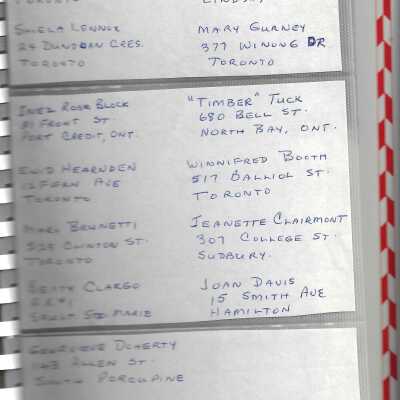 TORONTO
SHIELA LENNOX
24 DUNDOAN CRES.
TORONTO
LINDSAY
MARY GURNEY
377 WINONG DR
TORONTO
INEZ ROSE BLOCK
FRONT ST.
PORT CREDIT, ONT.
"TIMBER" TUCK
680 BELL ST.
NORTH BAY, ONT.
ENID HEARNDEN
12 FERN AVE
TORONTO
WINNIFRED BOOTH
517 BALLIOL ST.
TORONTO
BRUNETTI
CLINTON ST.
TORONTO
JEANETTE CLAIRMONT
307 COLLEGE ST.
SUDBURY.
BETTY CLARGO
R.R.#1
SAULT STE. MARIE
JOAN DAVIS
15 SMITH AVE
HAMILTON
GENEVIEVE DOHERTY
ALLEN ST.
SOUTH PORCUPINE